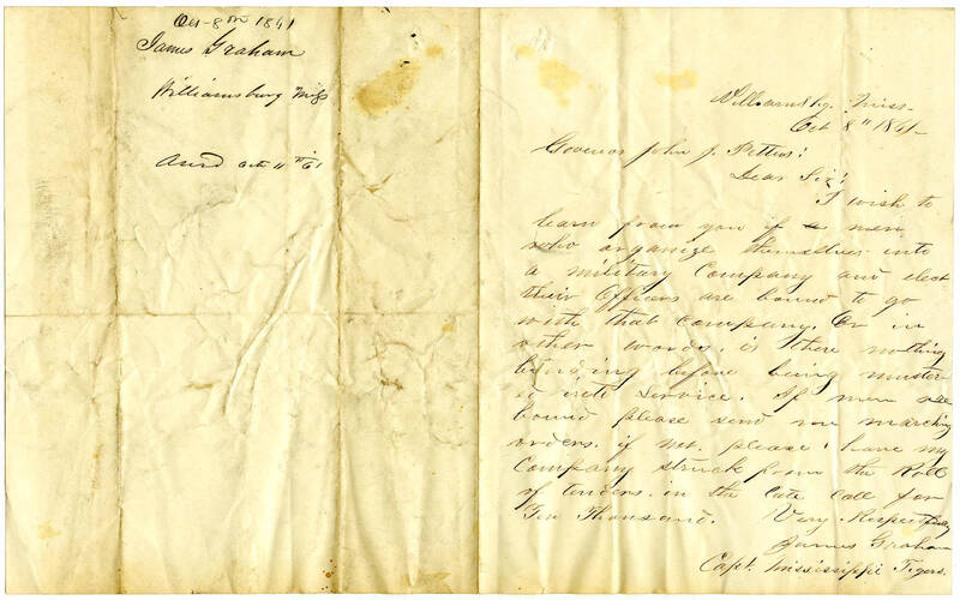 Oct 8th 1861
James Graham
Williamsburg Miss
Ansd Oct 11th 61
Williamsbg. Miss.
Oct 8" 1861
Govenor John J. Pettus:
Dear Sir:
I wish to
learn from you if men
who organize themselves into
a military Company and elect
their Officers are bound to go
with that company. Or in
other words, is there nothing
binding before being muster
ed into Service. If men are
bound please send me marching
orders. if not. please have my
Company struck from the Roll
of tenders. in the late call for
Ten Thousand. Very Respectfully
James Graham
Capt. Mississippi Tigers.